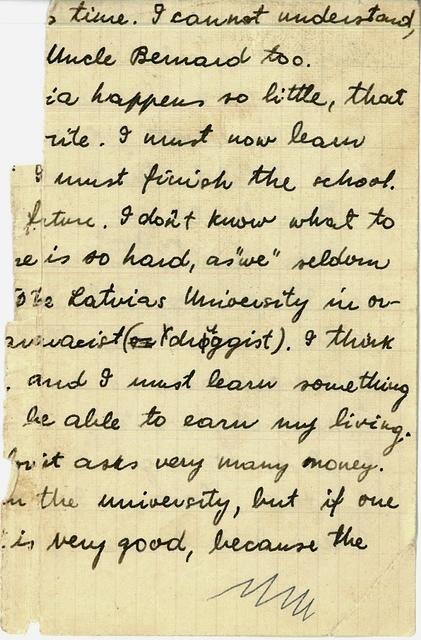 time. I cannot understand,
Uncle Bernard too.
happens so little, that
I must now learn
I must finish the school.
future. I don't know what to
is so hard, as "we" seldom
the Latvias University in or-
(or droggist). I think
and I must learn something
be able to earn my living.
but it asks very many money.
the university, but if one
is very good, because the